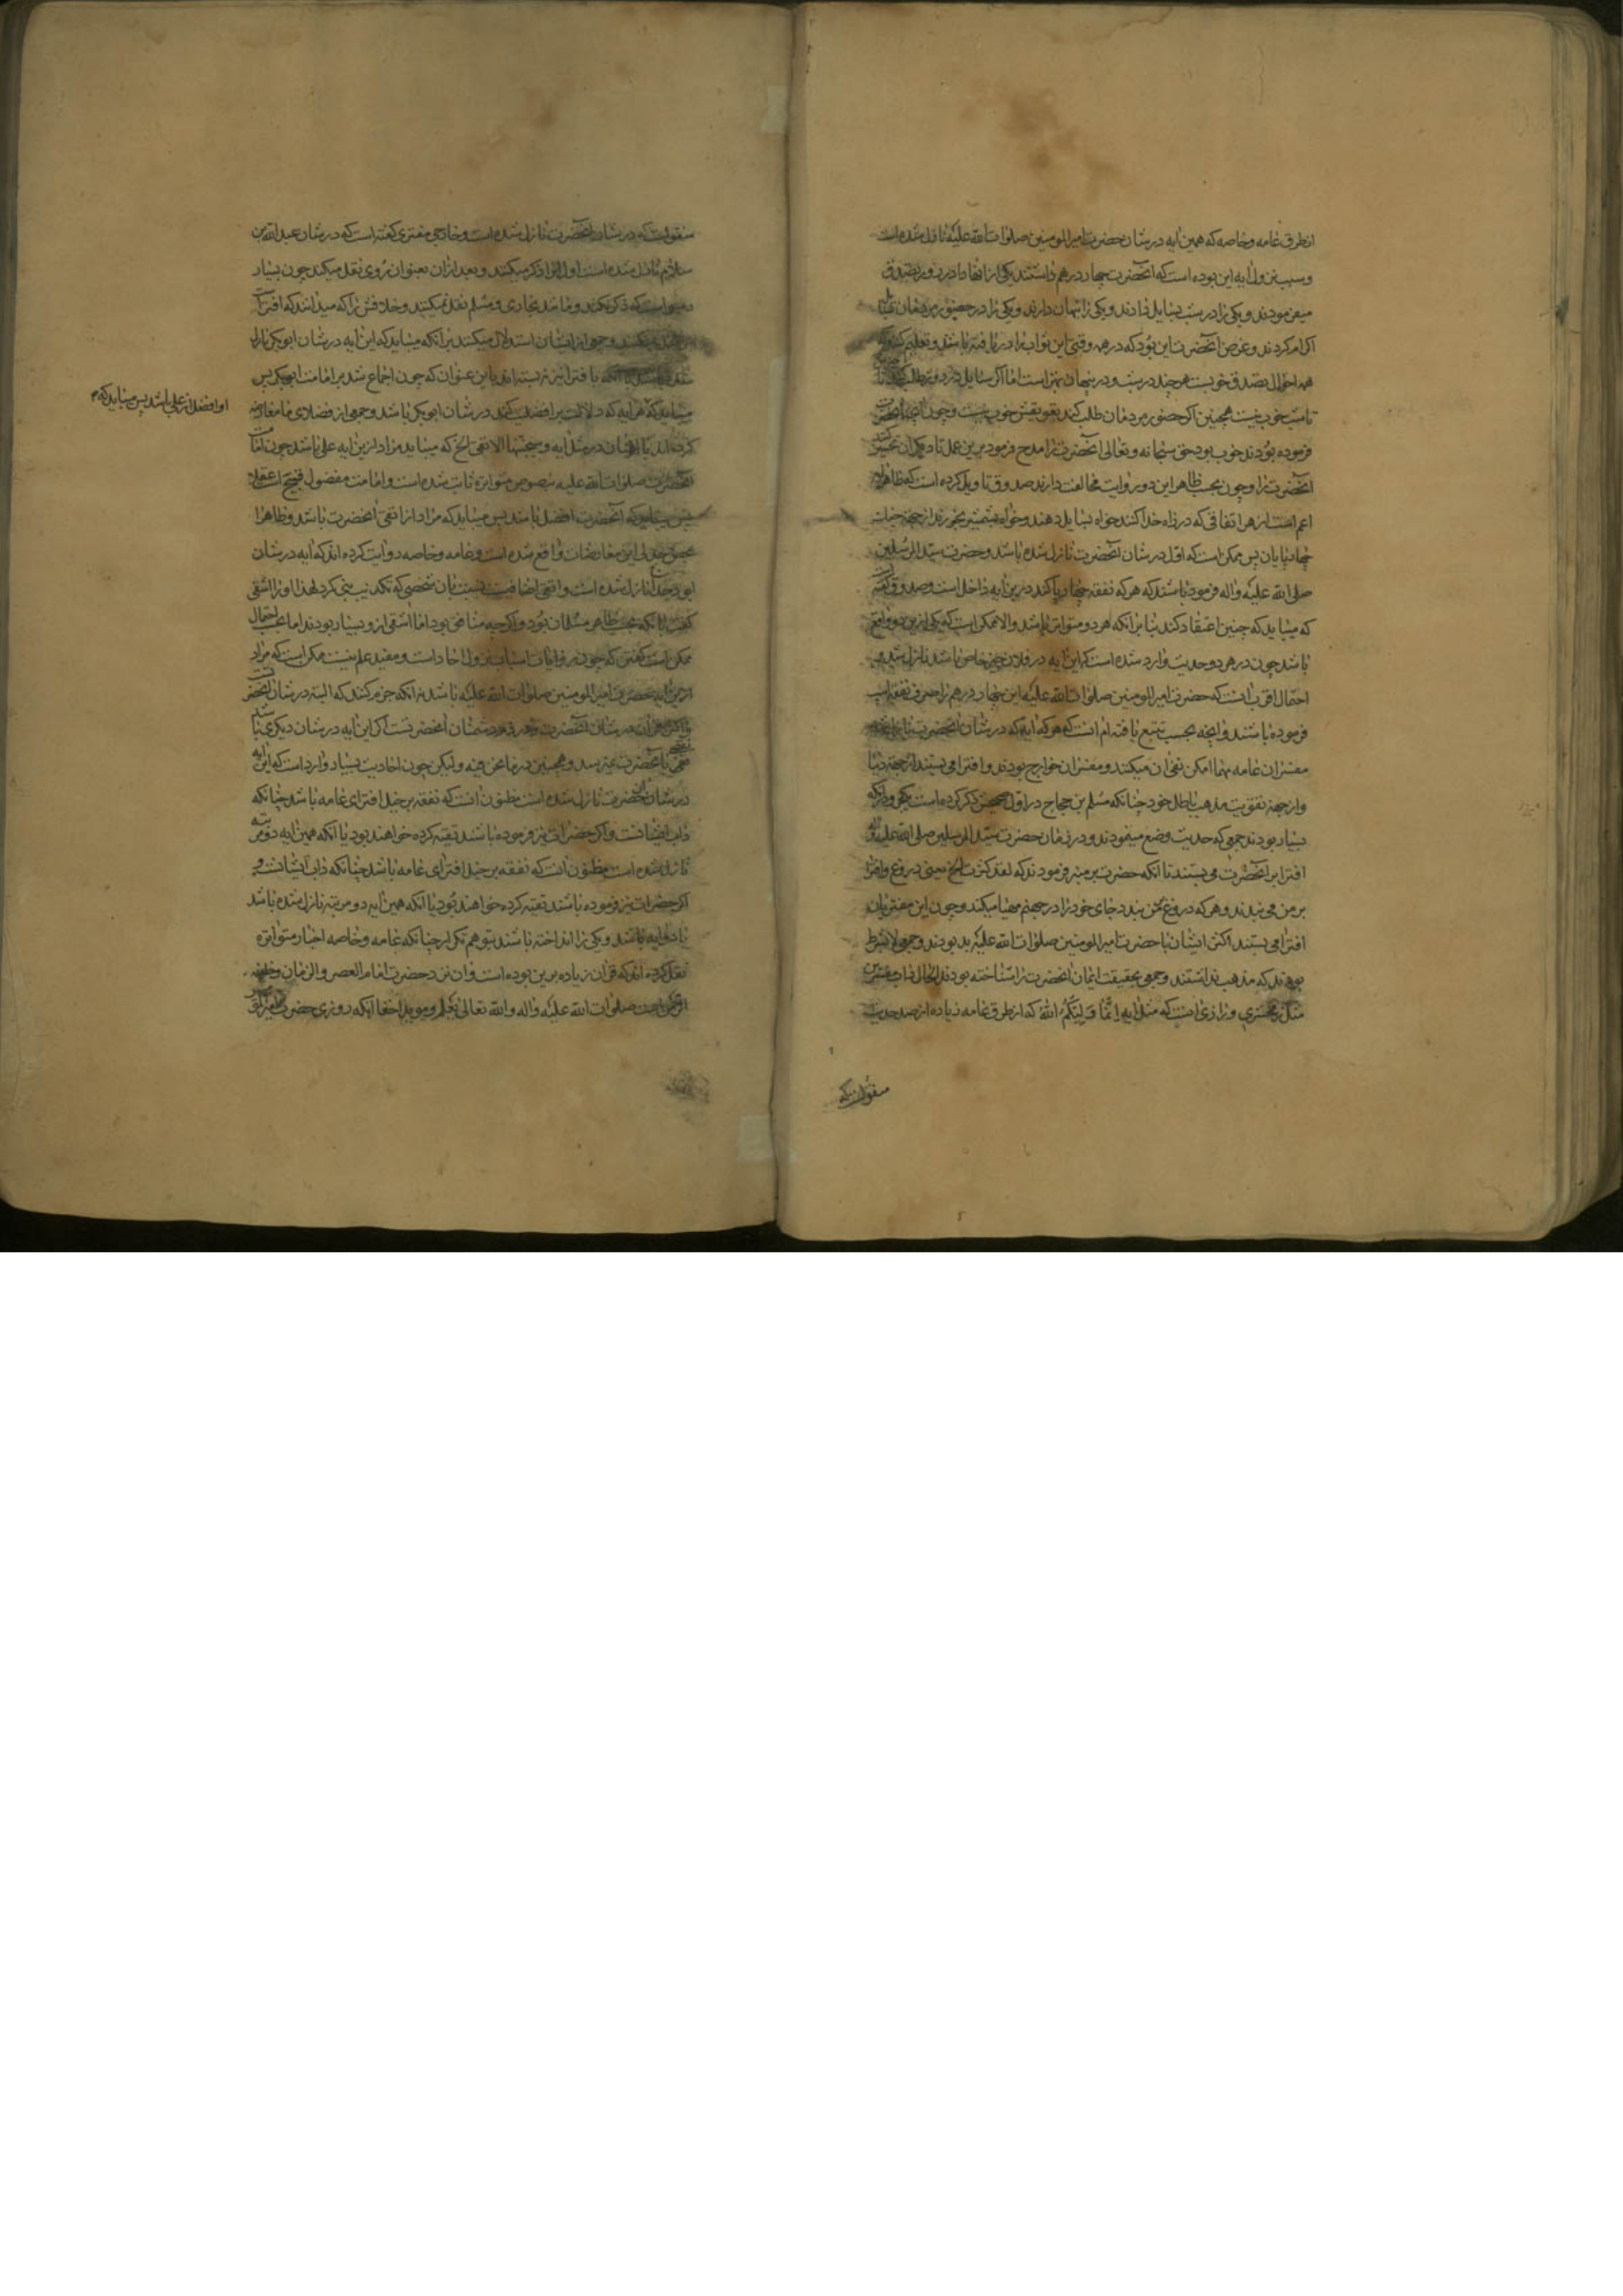 از طرق عامه و خاصه که همین ایه در شان حضرت امیر المومنین صلوات الله علیه نازل شده است
و سبب نزول ایه این بوده است که انحضرت چهار درهم داشتند یکی از انها را در روز تصدق
میفرمودند و یکی را در شب بسایل دادند و یکی را پنهان دارند و یکی را در حضور مردمان
اکرام کردند و غرض انحضرت این بود که در همه وقتی این ثواب را دریافته باشند و تعلیم
همه احوال تصدق خوبست هر چند در شب و در پنهان بهتر است اما اگر سایل در روز طلب کند
تا شب خوب نیست همچنین اگر حضور مردمان طلب کند تعویقش خوب نیست و چون
فرموده بودند خوب بود حق سبحانه و تعالی انحضرت را مدح فرمود برین عمل تا دیگران
انحضرت را و چون بحسب ظاهر این دو روایت مخالفت دارند صدوق تاویل کرده است که ظاهر
اعم است از هر اتفاقی که در راه خدا کنند خواه بسایل دهند و خواه از جهة
چهارپایان پس ممکن است که اول در شان انحضرت نازل شده باشد و حضرت سید المرسلین
صلی الله علیه و اله فرموده باشند که هر که نفقه چهارپا کند درین ایه داخل است و صدوق گفته
که میباید که چنین اعتقاد کند بنا بر انکه هر دو متواتر باشد و الا ممکن است که یکی ازین دو واقع
باشد چون در هر دو حدیث وارد شده است که این ایه در فلان چیز خاص باشد نازل شد و
احتمال اقرب انست که حضرت امیر المومنین صلوات الله علیه این چهار درهم را صرف نفقه اسب
فرموده باشند و انچه بحسب تتبع یافته ام انست که هر که ایه که در شان انحضرت
مفسران عامه مهما امکن نفی ان میکنند و مفسران خوارج بودند و افترا می بستند از جهة دنیا
و از جهة تقویت مذهب باطل خود چنانکه مسلم بن حجاج در اول صحیحش ذکر کرده است
بسیار بودند جمعی که حدیث وضع مینمودند و در زمان حضرت سید المرسلین صلی الله علیه و اله
افترا بر انحضرت می بستند تا انکه حضرت بر منبر فرمودند که لقد کثرت الخ یعنی دروغ و افترا
بر من می بندند و هر که دروغ بر من بندد جای خود را در جهنم مهیا میکند و چون این مفتریان
افترا می بستند اکثر ایشان با حضرت امیر المومنین صلوات الله علیه بد بودند و جمعی
بودند که مذهب نداشتند و جمعی بحقیقت ایمان انحضرت را شناخته بودند
مثل زمخشری و رازی انست که مثل ایه انما ولیکم الله که از طرق عامه زیاده از صد حدیث
منقولست که
منقولست که در شان انحضرت نازل شده است و خارجی مفتری گفته است که در شان عبد الله بن
سلام نازل شده است اول انرا ذکر میکنند و بعد از ان بعنوان روی نقل میکند چون بسیار
رسواست که ذکر نکند و مانند بخاری و مسلم نقل نمیکنند و خلافش را که میدانند که افتراست
و جمعی از ایشان استدلال میکنند بر انکه میباید که این ایه در شان ابو بکر نازل
با افترا نیز نبسته اند باین عنوان که چون اجماع شد بر امامت ابو بکر پس
او افضل از علی باشد پس میباید که
میباید که هر ایه که دلالت بر افضلیت کند در شان ابو بکر باشد و جمعی از فضلای ما معارضه
کرده اند با ایشان در مثل ایه و سیجنبها الاتقی الخ که میباید مراد ازین ایه علی باشد چون امامت
انحضرت صلوات الله علیه بنصوص متواتره ثابت شده است و امامت مفضول قبیح است عقلا
پس میباید که انحضرت افضل باشد پس میباید که مراد از اتقی انحضرت باشد و ظاهرا
این معارضات واقع شده است و عامه و خاصه روایت کرده اند که ایه در شان
ابو دحداح نازل شده است و اتقی اضافیست نسبت بان شخصی که تکذیب نبی کرد لهذا او را اشقی
گفت با انکه بحسب ظاهر مسلمان بود و اگرچه منافق بود اما اشقی ازو بسیار بودند اما بحسب احتمال
ممکن است گفتن که چون روایات اسباب نزول احاد است و مفید علم نیست ممکن است که مراد
ازین ایه حضرت امیر المومنین صلوات الله علیه باشد نه انکه جزم کنند که البته در شان انحضرتست
در شان انحضرت و در ذم دشمنان انحضرتست اگر این ایه در شان دیگری باشد
نقصی بانحضرت نمیرسد و همچنین در ما نحن فیه و لیکن چون احادیث بسیار وارد است که این ایه
در شان انحضرت نازل شده است مظنون انست که نفقه بر خیل افترای عامه باشد چنانکه
داب ایشانست و اگر حضرات نیز فرموده باشند تقیه کرده خواهند بود یا انکه همین ایه دو مرتبه
نازل شده است مظنون انست که نفقه بر خیل افترای عامه باشد چنانکه داب ایشانست و
اگر حضرات نیز فرموده باشند تقیه کرده خواهند بود یا انکه همین ایه دو مرتبه نازل شده باشد
یا دو ایه باشد و یکی را انداخته باشند بتوهم تکرار چنانکه عامه و خاصه اخبار متواتره
نقل کرده اند که قران زیاده برین بوده است و ان نزد حضرت امام العصر و الزمان و خلیفه
الرحمن است صلوات الله علیه و اله و الله تعالی یعلم و موید اخفا انکه روزی حضرت